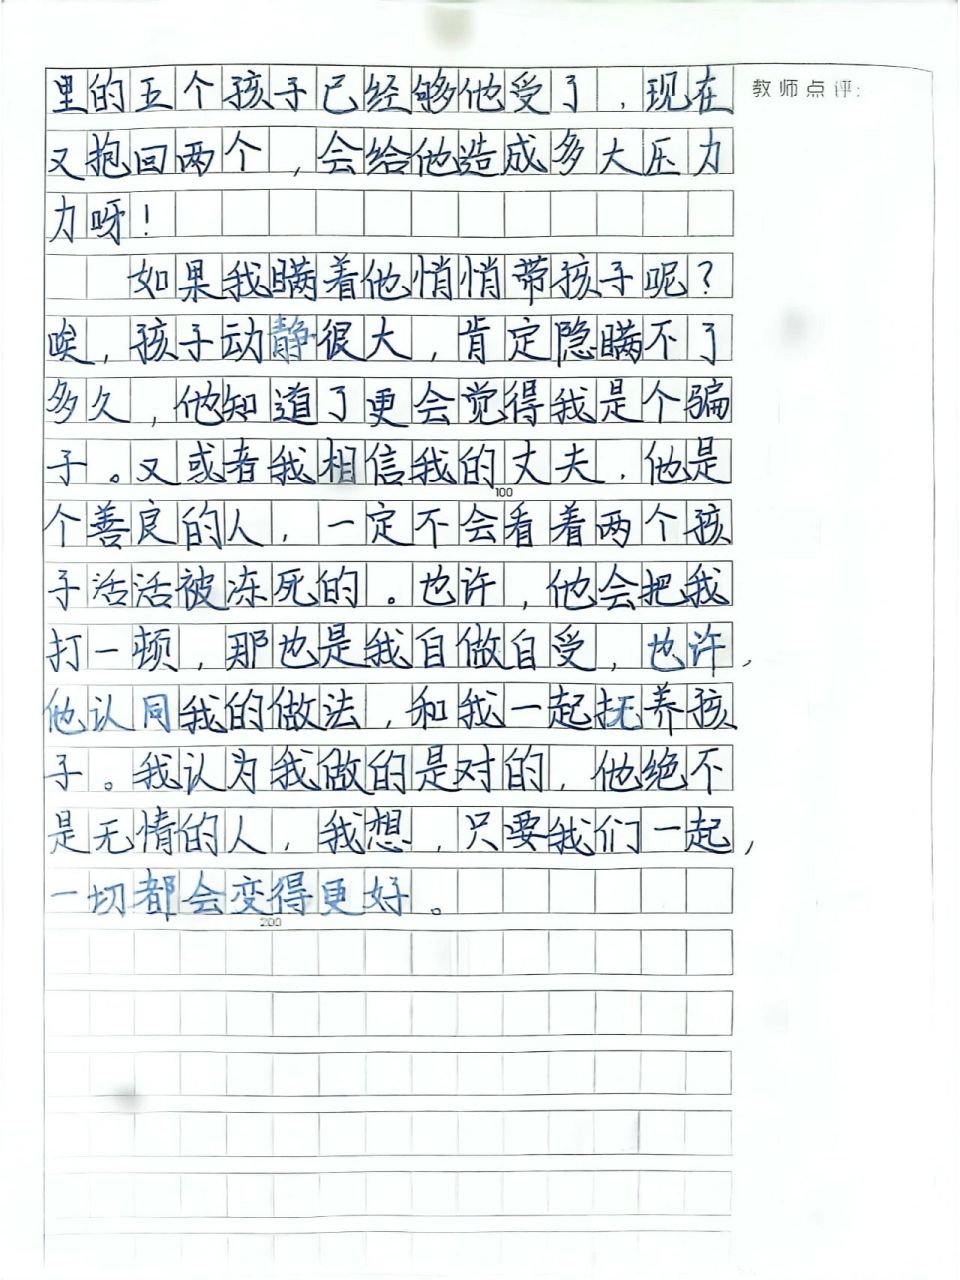 里的五个孩子已经够他受了，现在
教师点评：
又抱回两个，会给他造成多大压力
力呀！
如果我瞒着他悄悄带孩子呢？
唉，孩子动静很大，肯定隐瞒不了
多久，他知道了更会觉得我是个骗
子。又或者我相信我的丈夫，他是
100
个善良的人，一定不会看着两个孩
子活活被冻死的。也许，他会把我
打一顿，那也是我自做自受，也许，
他认同我的做法，和我一起抚养孩
子。我认为我做的是对的，他绝不
是无情的人，我想，只要我们一起，
一切都会变得更好。
200